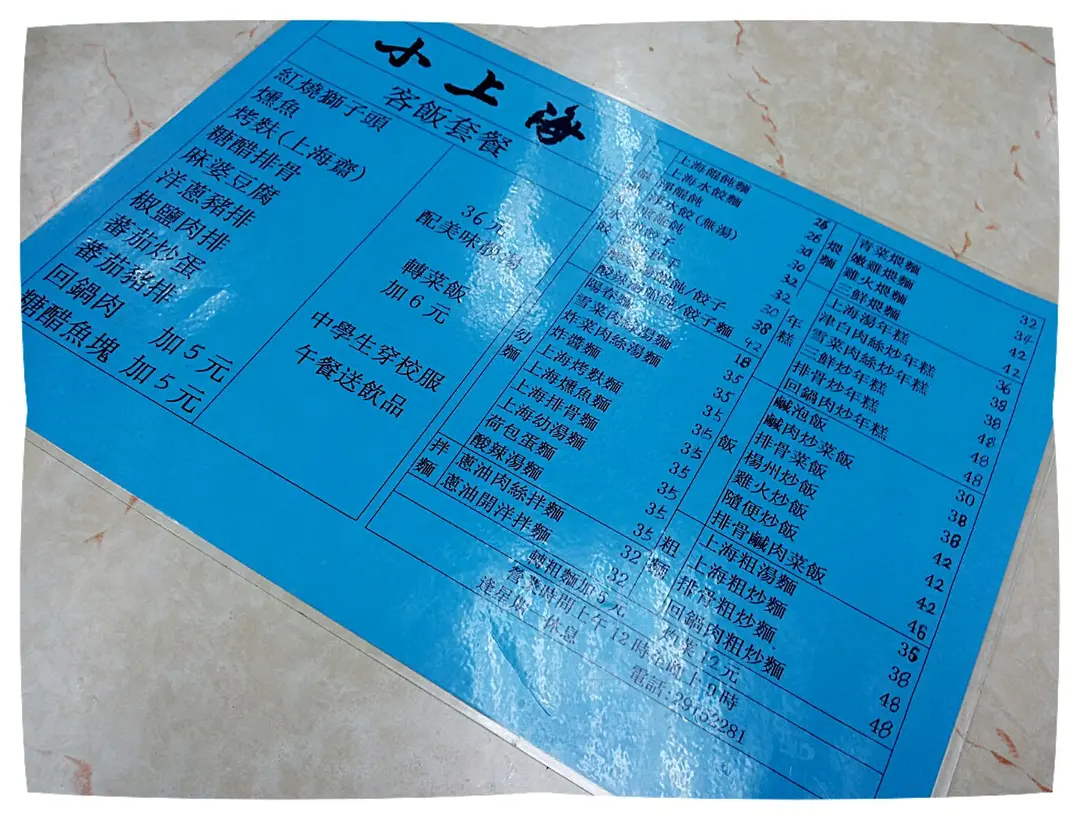 小上海
客飯套餐
紅燒獅子頭
燻魚
烤麩(上海齋)
糖醋排骨
麻婆豆腐
洋蔥豬排
椒鹽肉排
蕃茄炒蛋
蕃茄豬排
回鍋肉 加5元
糖醋魚塊 加5元
36元
配美味
轉菜飯
加6元
中學生穿校服
午餐送飲品
上海餛飩麵
上海水餃麵
水餃(無湯)
餛飩/餃子
餛飩/餃子麵
幼麵
陽春麵
雪菜肉絲湯麵
炸菜肉絲湯麵
炸醬麵
上海烤麩麵
上海燻魚麵
上海排骨麵
上海幼湯麵
荷包蛋麵
酸辣湯麵
拌麵
蔥油肉絲拌麵
蔥油開洋拌麵
26
30
30
32
32
30
38
42
18
35
35
35
35
35
35
35
35
32
32
煨麵
青菜煨麵 32
嫩雞煨麵 34
雞火煨麵 42
三鮮煨麵 42
年糕
上海湯年糕 36
津白肉絲炒年糕 38
雪菜肉絲炒年糕 38
三鮮炒年糕 48
排骨炒年糕 48
回鍋肉炒年糕 48
飯
鹹泡飯 30
鹹肉炒菜飯 38
排骨菜飯 38
楊州炒飯 42
雞火炒飯 42
隨便炒飯 42
排骨鹹肉菜飯 46
粗麵
上海粗湯麵 35
上海粗炒麵 38
排骨粗炒麵 48
回鍋肉粗炒麵 48
轉粗麵加5元
12元
營業時間上午12時至晚上9時
逢星期 休息
電話:29152281